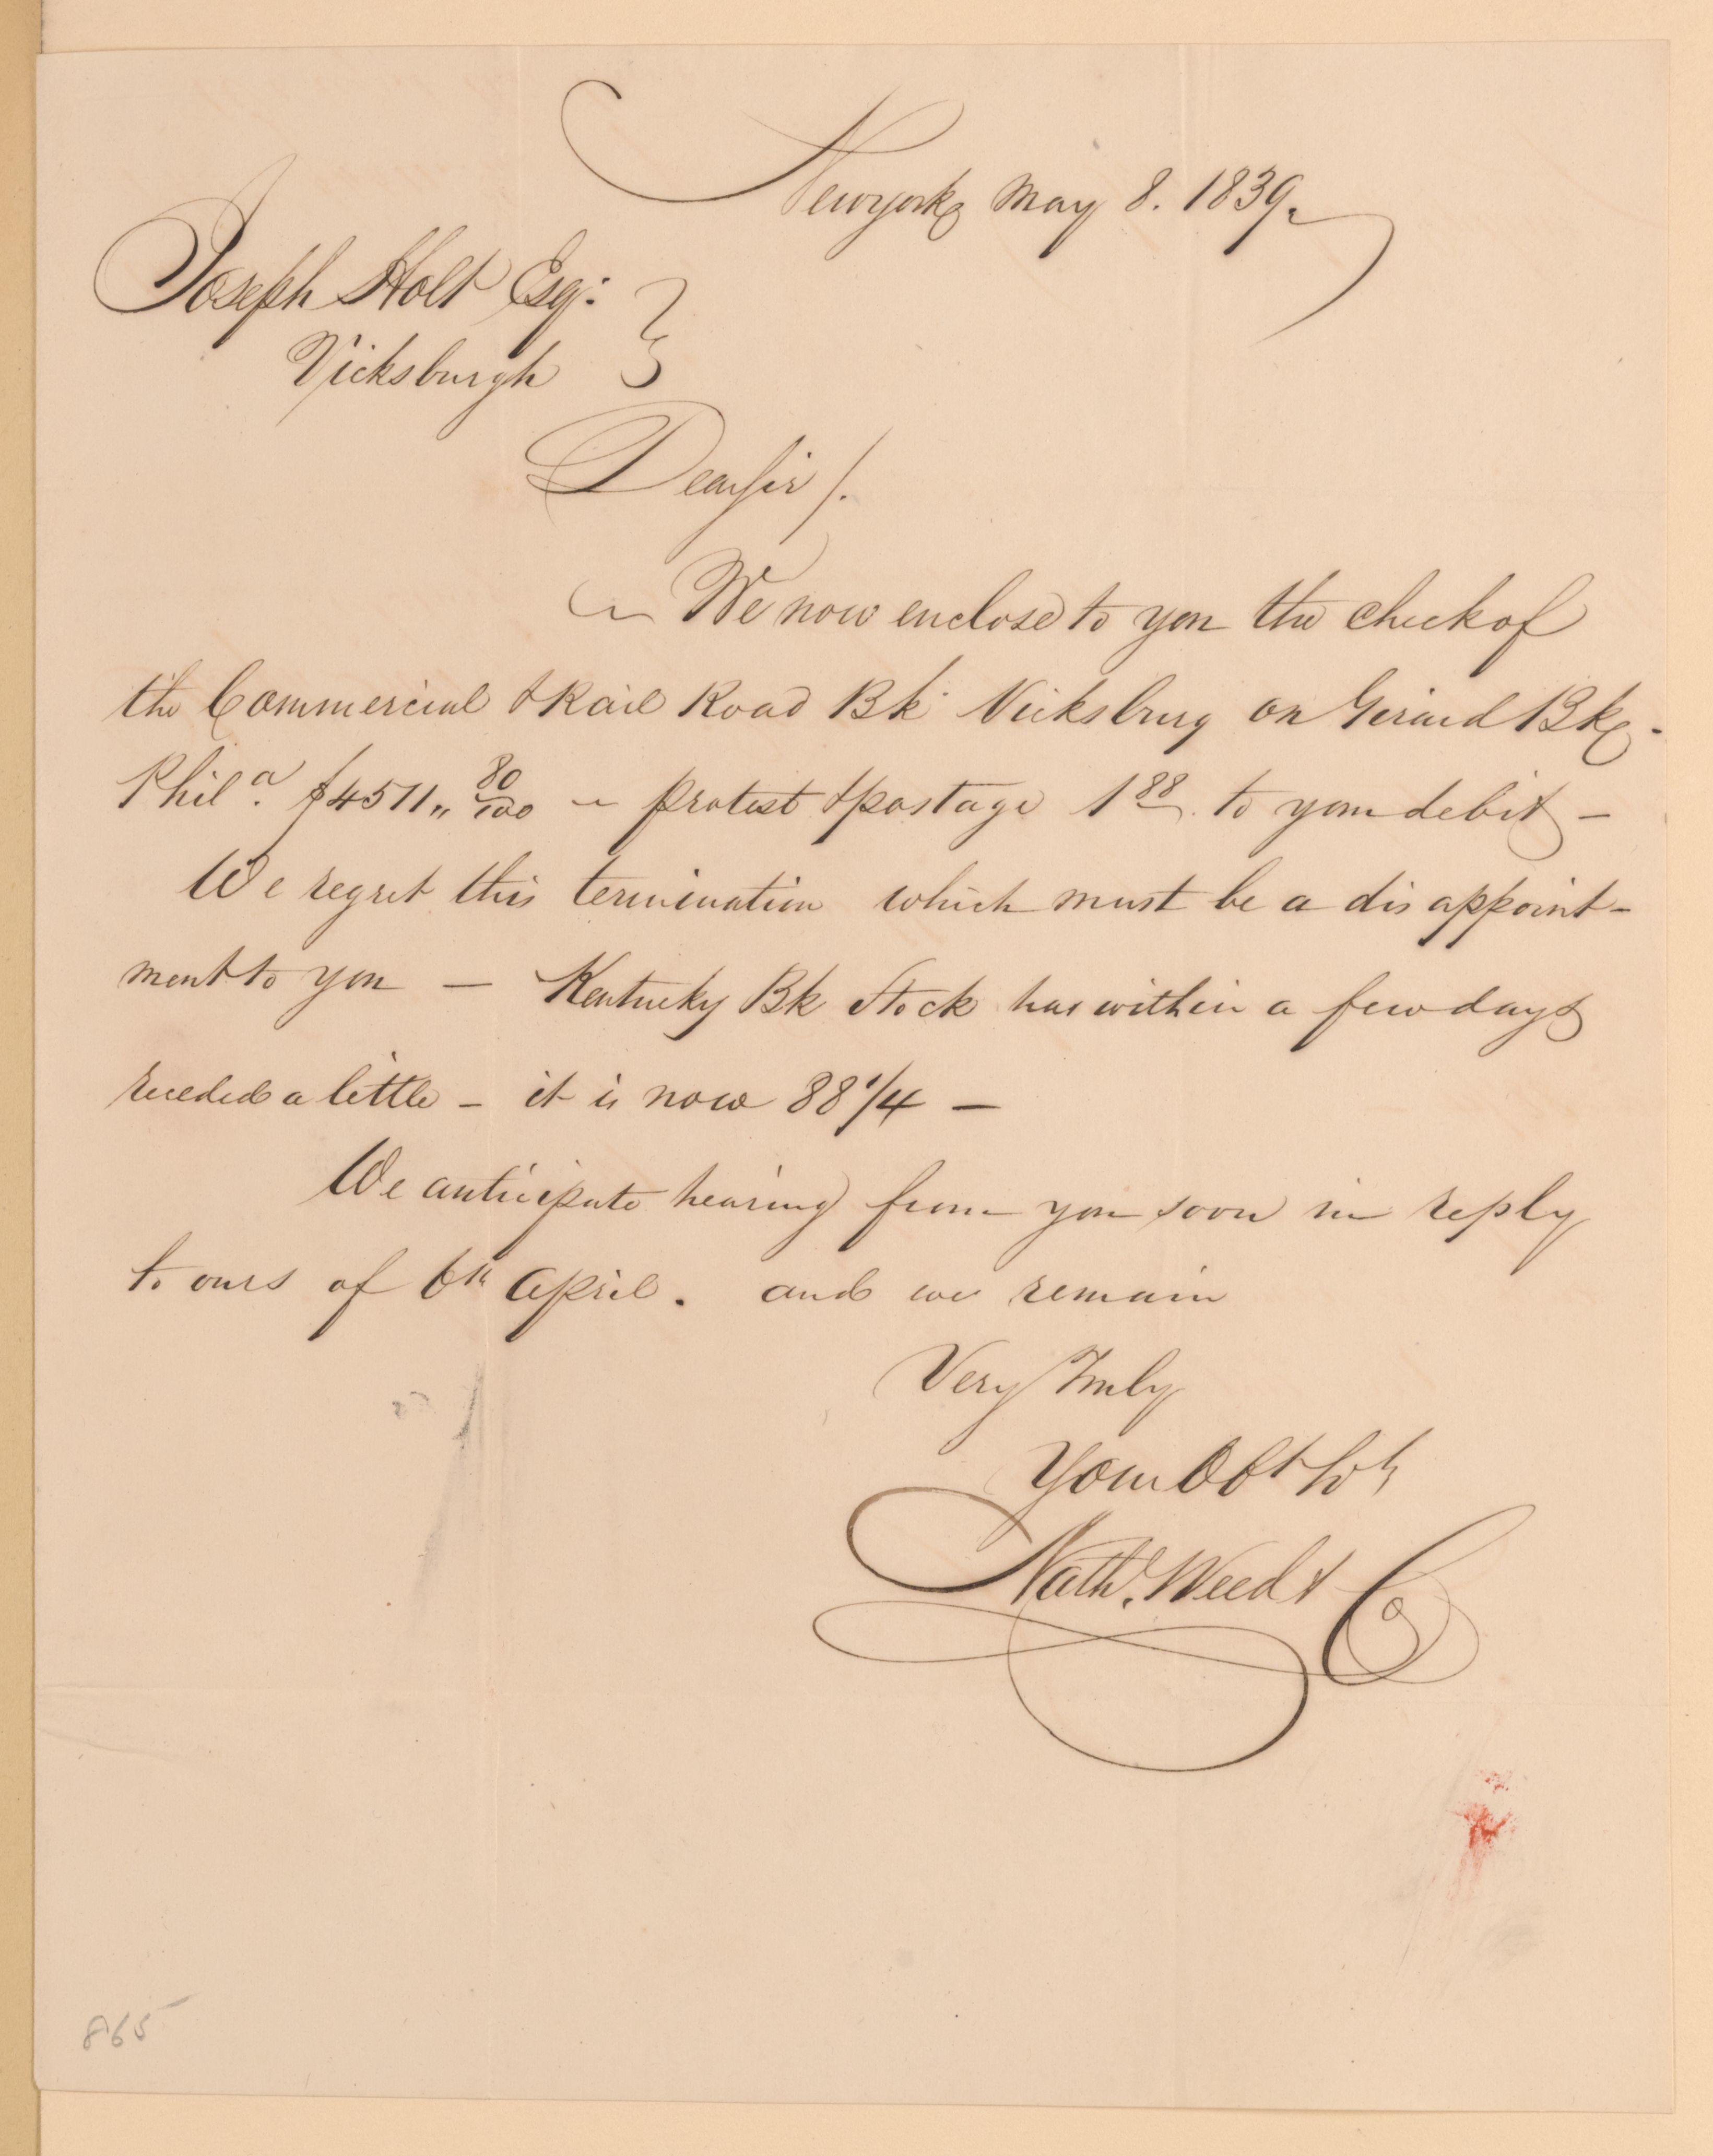 Newyork May 8. 1839.
Joseph Holt Esqr:
Vicksburgh
Dear Sir /.
We now enclose to you the check of
the Commercial & Rail Road Bk Vicksburg on Girard Bk.
Phila. $4511,, 80/100 – protest & postage 1 88 to your debit –
We regret this termination which must be a disappoint-
ment to you – Kentucky Bk Stock has within a few days
receded a little – it is now 88 1/4 –
We anticipate hearing from you soon in reply
to ours of 6th April. and we remain
Very Truly
Your Obt Svts
Nathl. Weed & Co
865